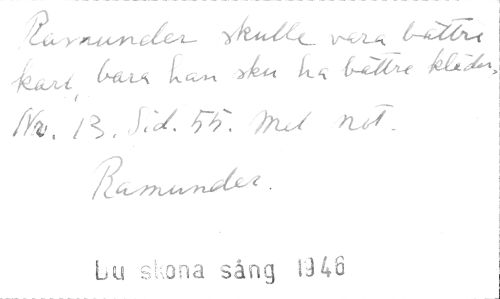 Ramunder skulle vara bättre
karl, bara han sku ha bättre kläder.
Nr. 13. Sid. 55. Med not.
Ramunder.
Du sköna sång 1946